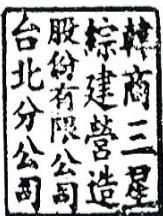 韓商三星
綜建營造
股份有限公司
台北分公司